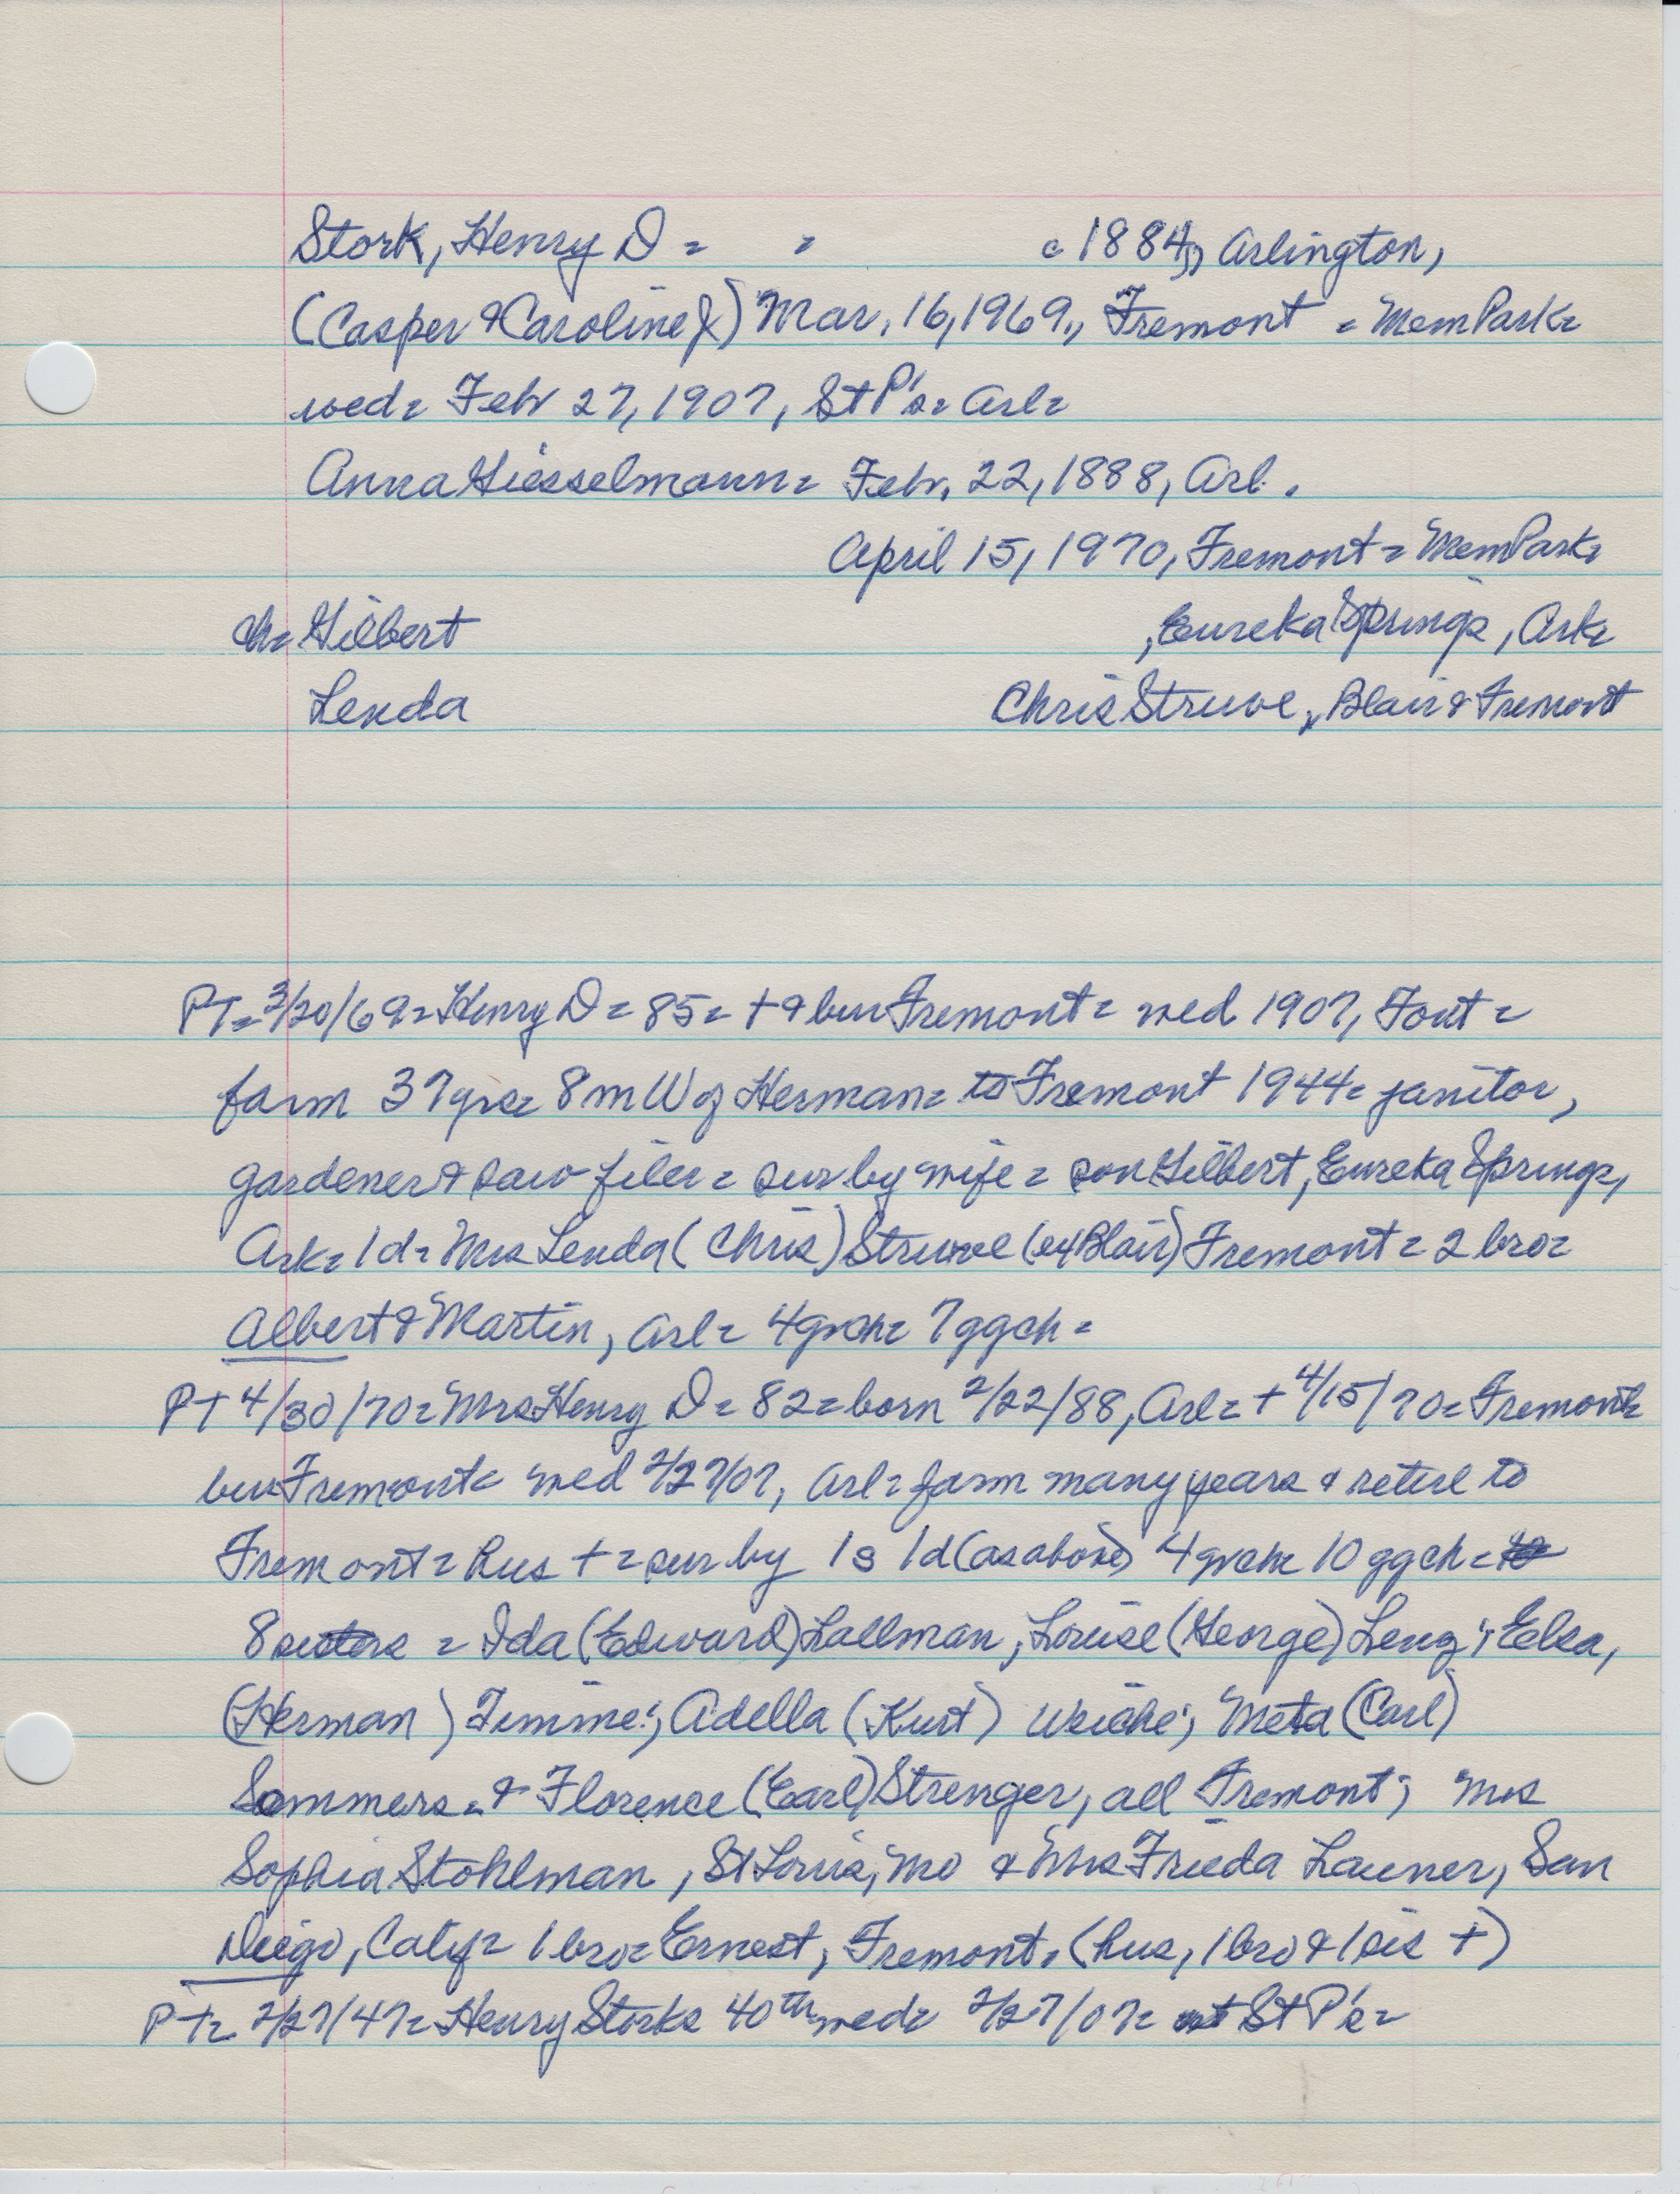 Stork, Henry D = = c 1884, Arlington,
(Casper & Caroline J) Mar. 16, 1969., Fremont = Mem Park=
wed= Feb 27, 1907, St P's= Arl=
Anna Giesselmann= Feb. 22, 1888, Arl.
April 15, 1970, Fremont= Mem Park=
ch= Gilbert , Eureka Springs, Ark=
Lenda Chris Struve, Blair & Fremont
PT= 3/20/69= Henry D= 85= + & bur Fremont= wed 1907, Font=
farm 37 yrs= 8 m W of Herman= to Fremont 1944= janitor,
gardener & saw filer= sur by wife= son Gilbert, Eureka Springs,
Ark= 1 d= Mrs Lenda (Chris) Struve (ex Blair) Fremont= 2 bro=
Albert & Martin, Arl= 4 grch= 7 ggch=
PT 4/30/70= Mrs Henry D= 82= born 2/22/88, Arl= + 4/15/70= Fremont=
bur Fremont= wed 2/27/07, Arl= farm many years & retire to
Fremont= hus += sur by 1 s 1 d (as above) 4 grch= 10 ggch=
8 sisters = Ida (Edward) Lallman, Louise (George) Lenz; Elsa,
(Herman) Timme; Adella (Kurt) Weiche; Meta (Carl)
Sommers= & Florence (Earl) Strenger, all Fremont; Mrs
Sophia Stohlman, St Louis, Mo & Mrs Frieda Launer, San
Diego, Calif= 1 bro= Ernest, Fremont. (hus, 1 bro & 1 sis +)
PT= 2/27/47= Henry Storks 40th wed= 2/27/07= at St P's=